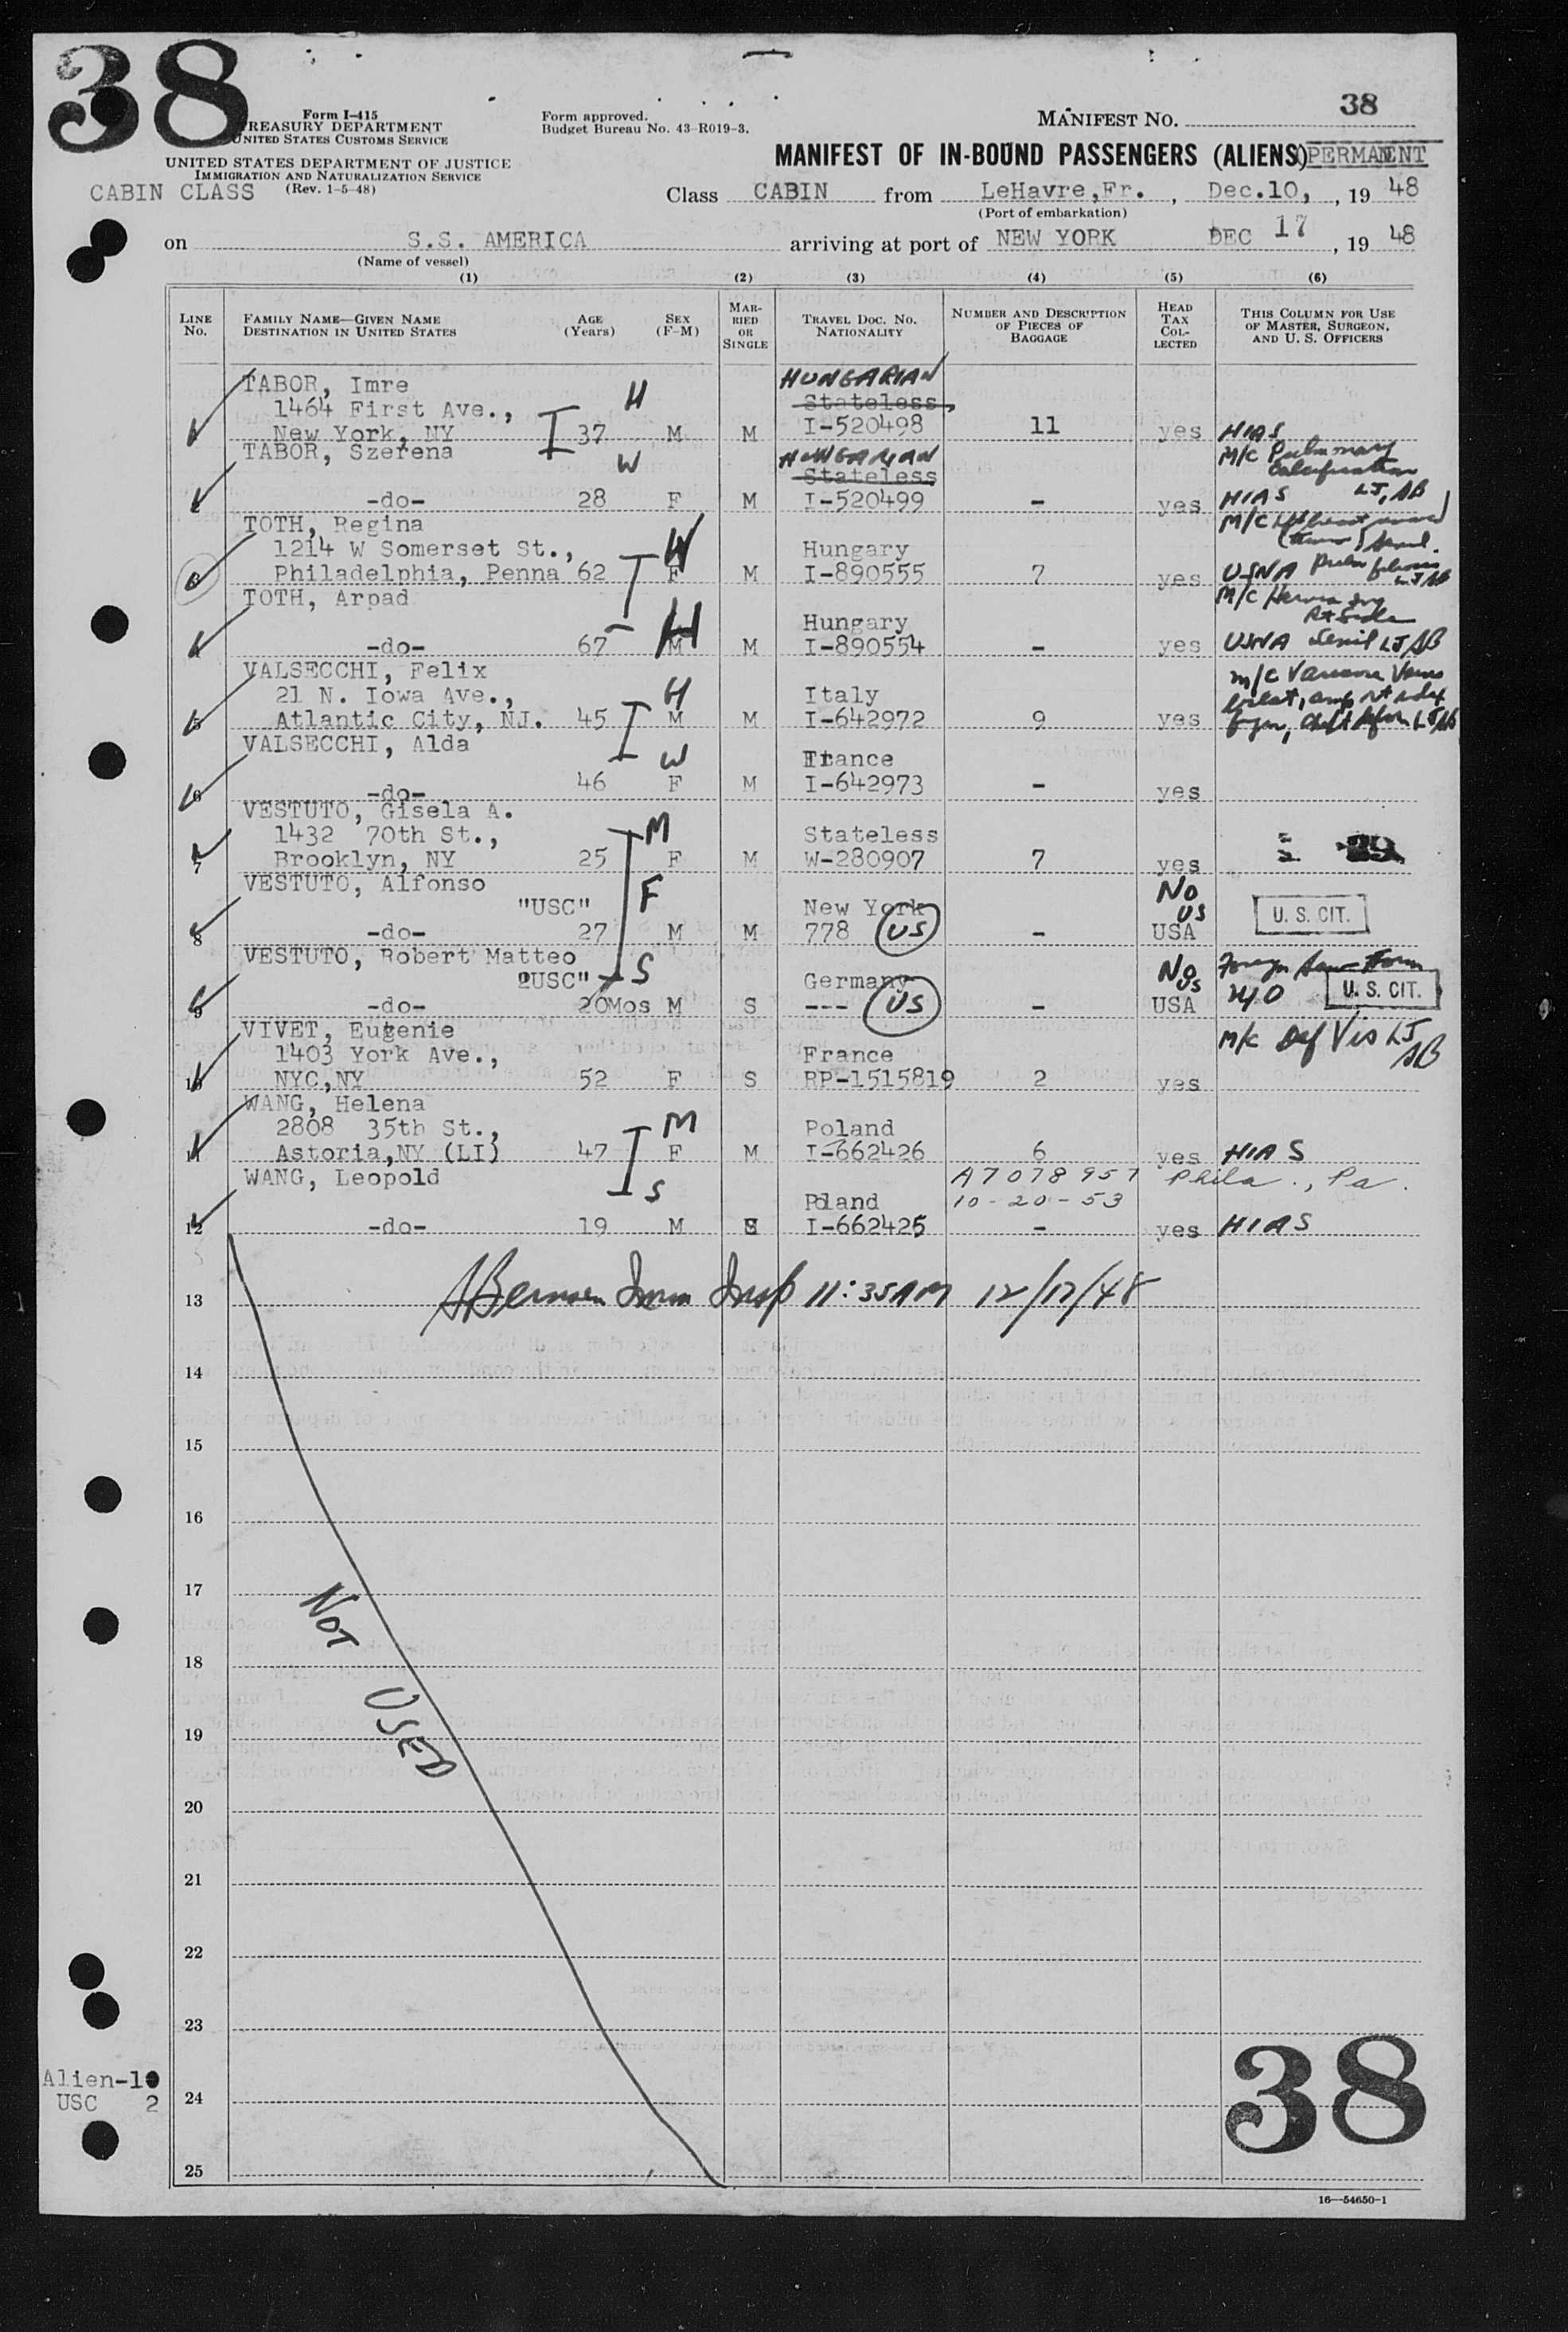 38
Form I-415
TREASURY DEPARTMENT
UNITED STATES CUSTOMS SERVICE
UNITED STATES DEPARTMENT OF JUSTICE
IMMIGRATION AND NATURALIZATION SERVICE
(Rev. 1-5-48)
CABIN CLASS
Form approved.
Budget Bureau No. 43-R019-3.
MANIFEST No. 38
MANIFEST OF IN-BOUND PASSENGERS (ALIENS) PERMANENT
Class CABIN from LeHavre,Fr., Dec.10, , 19 48
(Port of embarkation)
on S.S. AMERICA arriving at port of NEW YORK DEC 17 , 19 48
(Name of vessel)
(1) (2) (3) (4) (5) (6)
LINE No. FAMILY NAME—GIVEN NAME DESTINATION IN UNITED STATES AGE (Years) SEX (F-M) MARRIED OR SINGLE TRAVEL DOC. NO. NATIONALITY NUMBER AND DESCRIPTION OF PIECES OF BAGGAGE HEAD TAX COLLECTED THIS COLUMN FOR USE OF MASTER, SURGEON, AND U. S. OFFICERS
TABOR, Imre HUNGARIAN
1464 First Ave., H Stateless,
New York, NY 37 M M I-520498 11 yes HIAS
TABOR, Szerena W HUNGARIAN M/C Pulmonary
Stateless calcification
-do- 28 F M I-520499 - yes HIAS LJ, AB
TOTH, Regina M/C
1214 W Somerset St., W Hungary
Philadelphia, Penna 62 F M I-890555 7 yes USNA
TOTH, Arpad M/C Hernia
H Hungary Rt Side
4 -do- 67 M M I-890554 - yes USNA Senil LJ AB
VALSECCHI, Felix M/C Varicose Veins
21 N. Iowa Ave., H Italy
5 Atlantic City, NJ. 45 M M I-642972 9 yes
VALSECCHI, Alda W France
6 -do- 46 F M I-642973 - yes
VESTUTO, Gisela A. M
1432 70th St., Stateless
7 Brooklyn, NY 25 F M W-280907 7 yes 29
VESTUTO, Alfonso F No
"USC" New York US
8 -do- 27 M M 778 US - USA U. S. CIT.
VESTUTO, Robert Matteo S No
"USC" Germany US
9 -do- 20Mos M S --- US - USA 240 U. S. CIT.
VIVET, Eugenie M/C Def Vis LJ
1403 York Ave., France AB
10 NYC,NY 52 F S RP-1515819 2 yes
WANG, Helena M
2808 35th St., Poland
11 Astoria,NY (LI) 47 F M I-662426 6 yes HIAS
WANG, Leopold S A7078957 Phila., Pa.
Poland 10-20-53
12 -do- 19 M S I-662425 - yes HIAS
13 Imm Insp 11:35AM 12/17/48
14
15
16
17
NOT USED
18
19
20
21
22
23
Alien-10
USC 2
24
25
38
16—54650-1